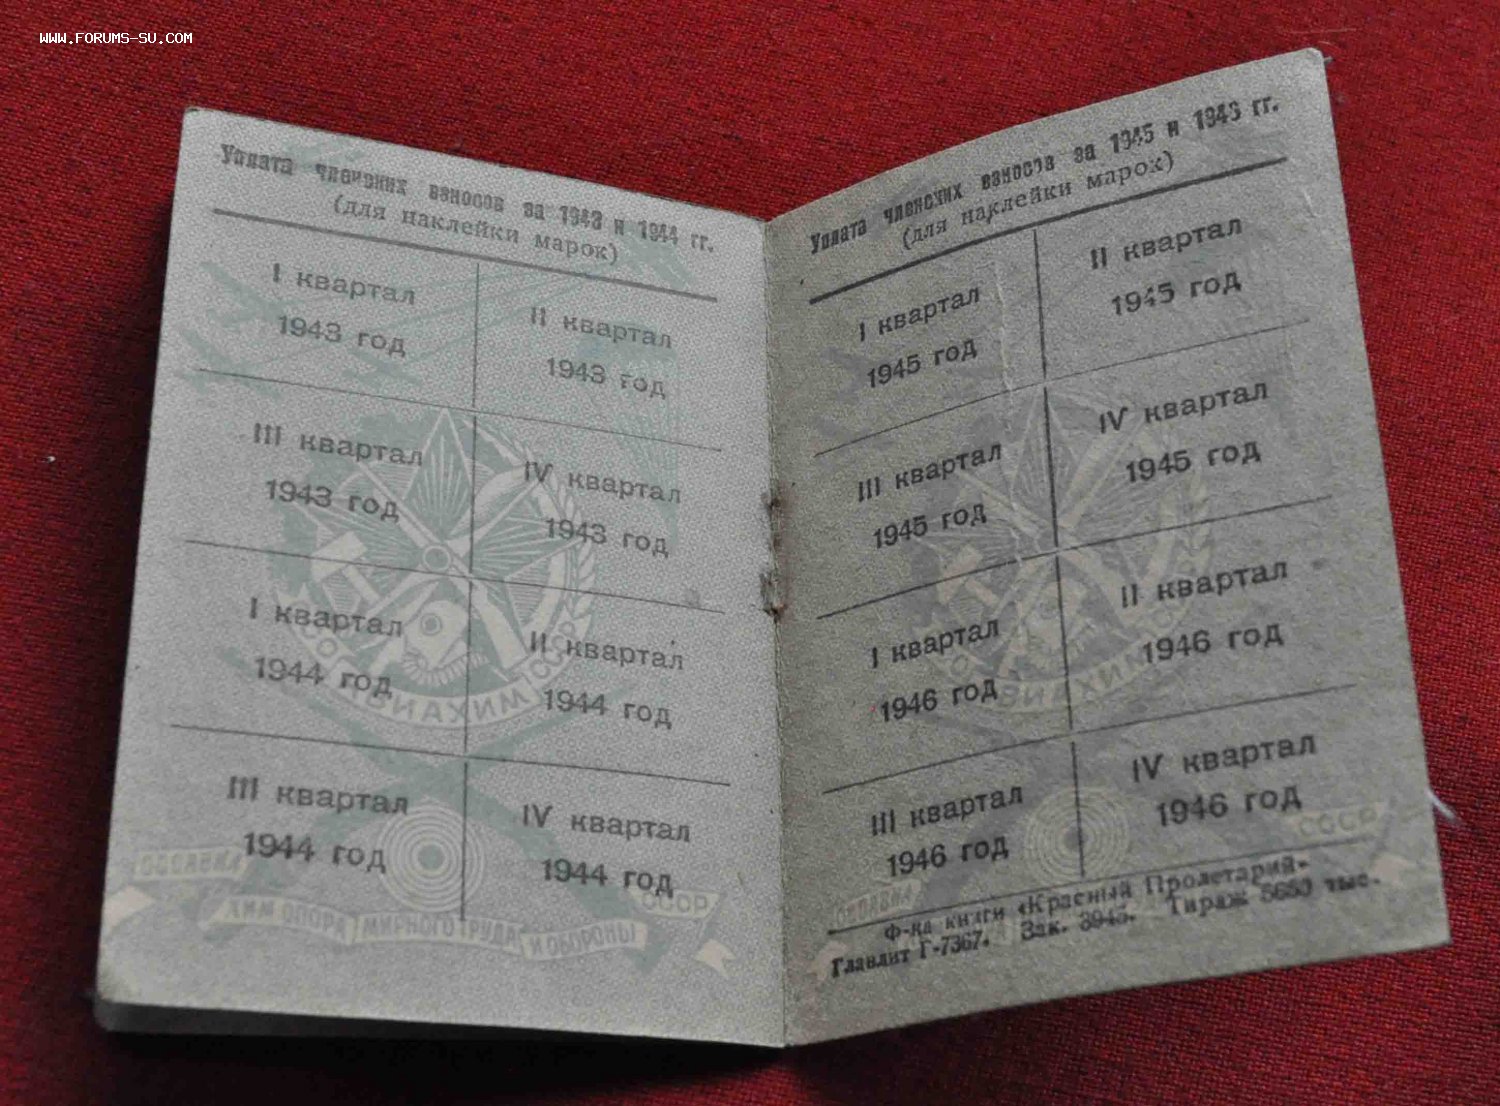 WWW.FORUMS-SU.COM
Уплата членских взносов за 1943 и 1944 гг.
(для наклейки марок)
I квартал
1943 год
II квартал
1943 год
III квартал
1943 год
IV квартал
1943 год
I квартал
1944 год
II квартал
1944 год
III квартал
1944 год
IV квартал
1944 год
ОСОАВИАХИМ СССР
ОСОАВИА
СССР
ХИМ ОПОРА МИРНОГО ТРУДА И ОБОРОНЫ
Уплата членских взносов за 1945 и 1946 гг.
(для наклейки марок)
I квартал
1945 год
II квартал
1945 год
III квартал
1945 год
IV квартал
1945 год
I квартал
1946 год
II квартал
1946 год
III квартал
1946 год
IV квартал
1946 год
СССР
Ф-ка книги «Красный Пролетарий»
Главлит Г-7367. Зак. 3945. Тираж тыс.